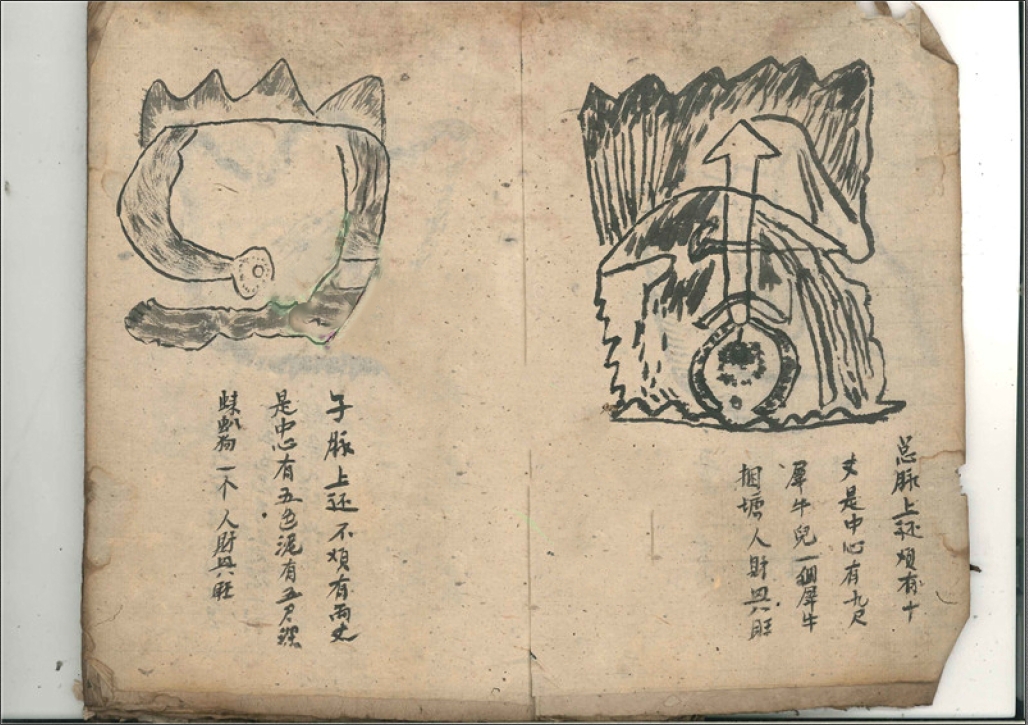 总脉上还须有十
丈是中心有九尺
犀牛兒一個犀牛
塘人財興旺
子脉上还不煩有兩丈
是中心有五色泥有五尺深
蛛一个人財興旺